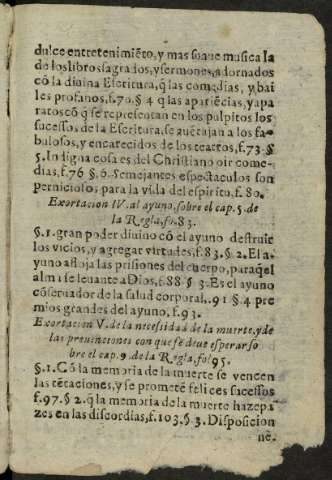 dulce entretenimiẽto, y mas suaue musica la
de los libros sagrados, y sermones, adornados
cõ la diuina Escritura, q̃ las comedias, y bai
les profanos, f. 70. § 4 q̃ las apariẽcias, y apa
ratos cõ q̃ se representan en los pulpitos los
sucessos de la Escritura, se auẽtajan a los fa-
bulosos, y encarecidos de los teatros, f. 73 §
5. Indigna cosa es del Christiano oir come-
dias, f. 76 §. 6. Semejantes espectaculos son
perniciosos para la vida del espiritu, f. 80.
Exortacion IV. al ayuno, sobre el cap. 5. de
la Regla, fo. 83.
§. 1. gran poder diuino cõ el ayuno destruir
los vicios, y agregar virtudes, f. 83. §. 2. El a-
yuno afloja las prisiones del cuerpo, para q̃ el
alma se leuante a Dios, f. 88 § 3. Es el ayuno
cõseruador de la salud corporal, . 91 §. 4 pre
mios grandes del ayuno, f. 93.
Exortacion V. de la necessidad de la muerte, y de
las preuinciones con que se deue esperar so
bre el cap. 9. de la Regla, fol 95.
§. 1. Cõ la memoria de la muerte se vencen
las tẽtaciones, y se prometẽ felices sucessos
f. 97. §. 2. q̃ la memoria de la muerte haze pa
zes en las discordias, f. 103. §. 3. Disposicion
nẽ.